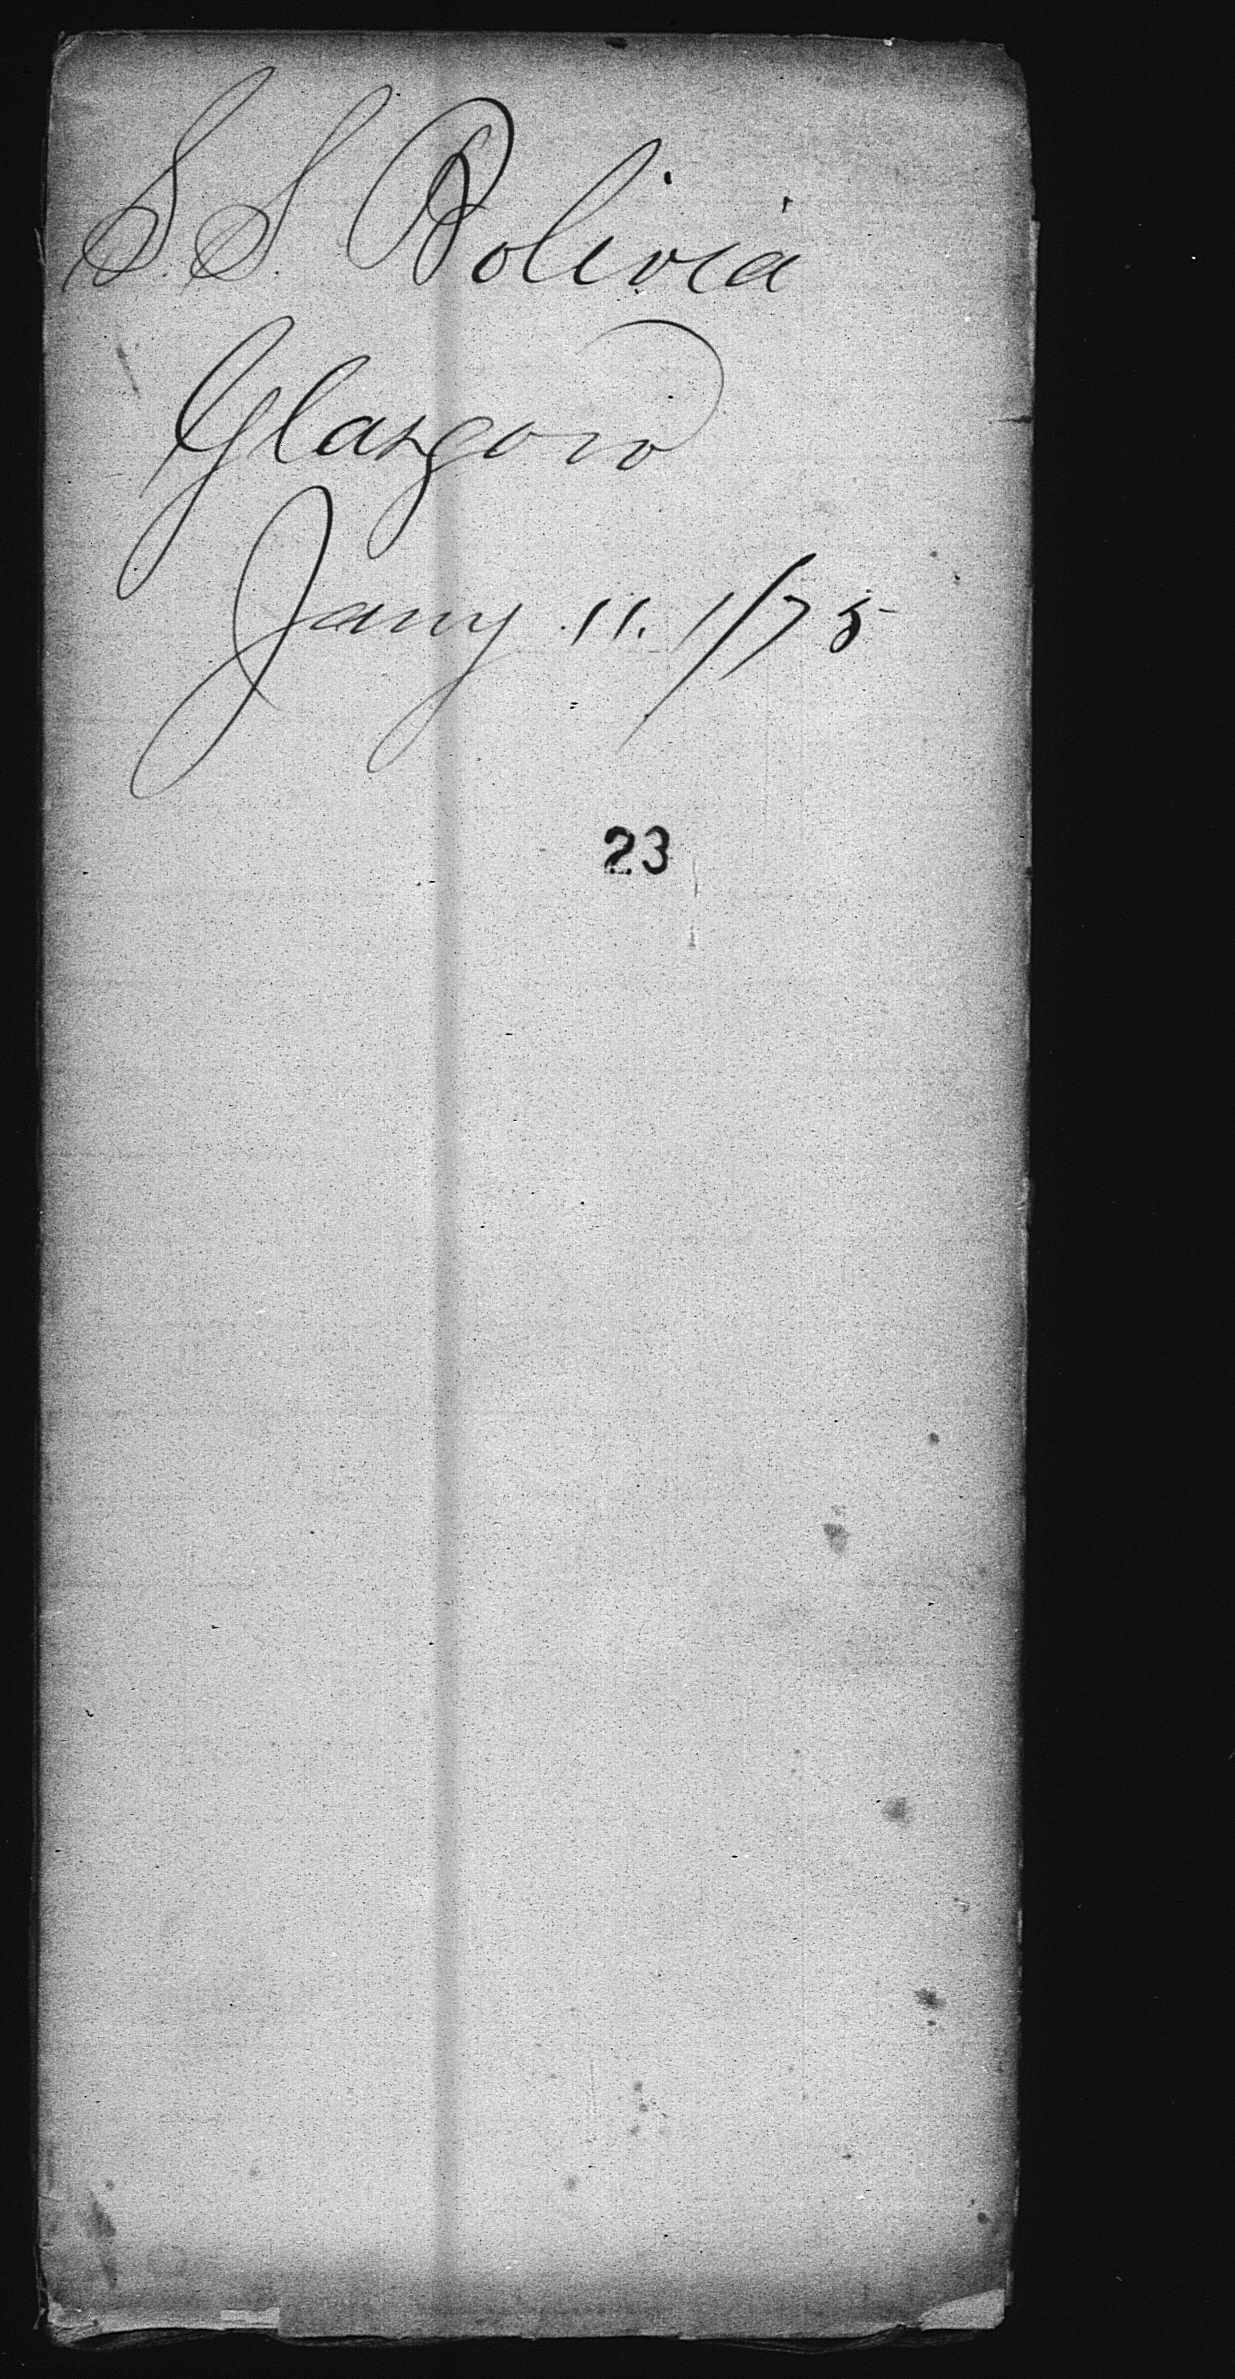 S.S. Bolivia
Glasgow
Jany 11. 1/75
23